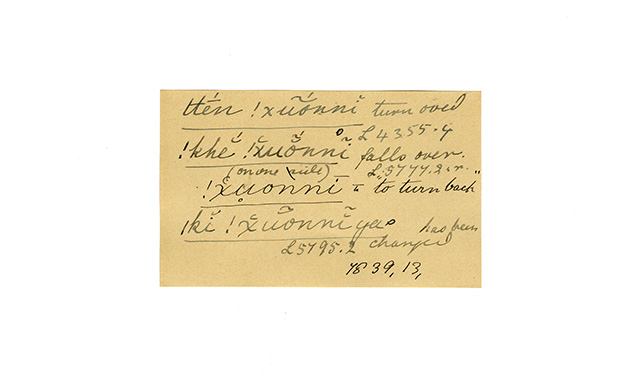 ttén !xuónnĭ turn over
L 4355.4
!khĕ !xŭŏnnĭ falls over.
(on one side) L. 5777.2.r.
!xuonnĭ = to turn back
kĭ !xŭŏnnĭ ya has been
L 5795.2 changed
39, 13,